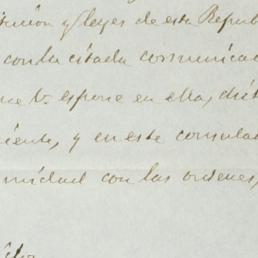 tucion y leyes de esta Repub
con la citada comunicac
ne V. espone en ella, dict
iente, y en este consulad
midad con las ordenes,